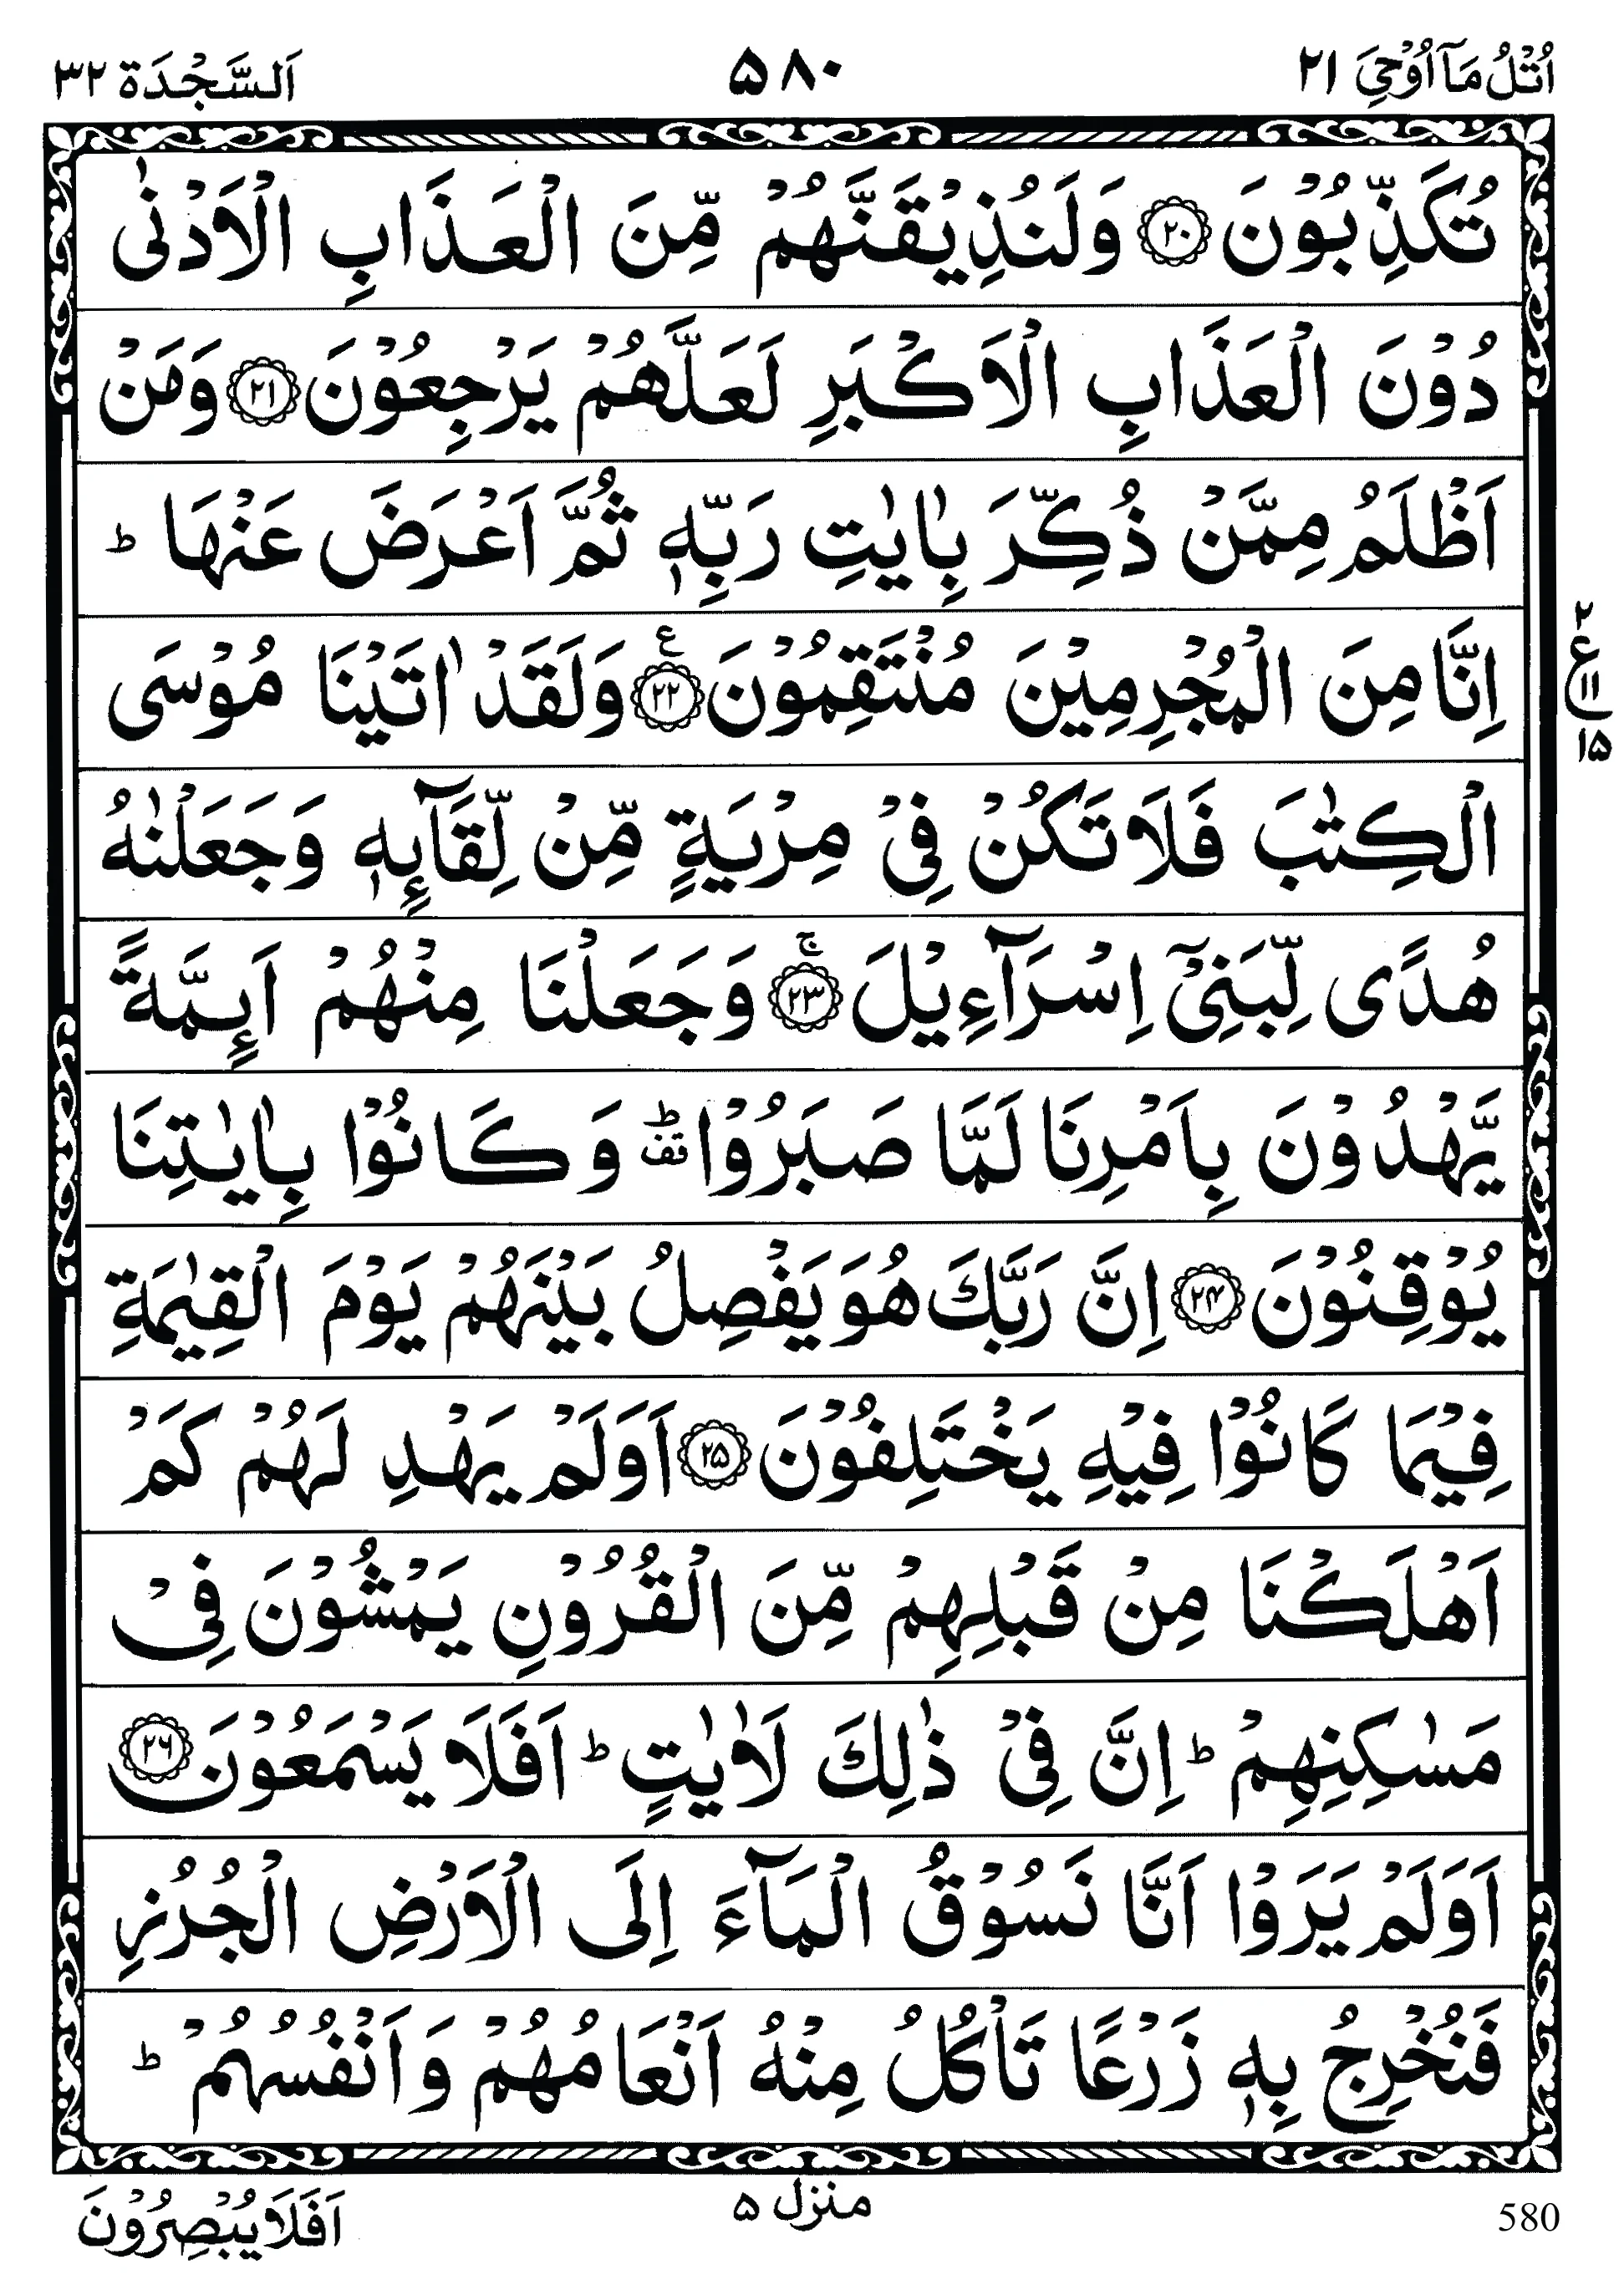 اُتْلُ مَآ اُوْحِیَ ۲۱ ۵۸۰ اَلسَّجْدَة ۳۲
تُكَذِّبُوْنَ ۝۲۰ وَلَنُذِيْقَنَّهُمْ مِّنَ الْعَذَابِ الْاَدْنٰى
دُوْنَ الْعَذَابِ الْاَكْبَرِ لَعَلَّهُمْ يَرْجِعُوْنَ ۝۲۱ وَمَنْ
اَظْلَمُ مِمَّنْ ذُكِّرَ بِاٰيٰتِ رَبِّهٖ ثُمَّ اَعْرَضَ عَنْهَا ؕ
اِنَّا مِنَ الْمُجْرِمِيْنَ مُنْتَقِمُوْنَ ۝۲۲ ع وَلَقَدْ اٰتَيْنَا مُوْسَى
۲ ع ۱۱ ۱۵
الْكِتٰبَ فَلَا تَكُنْ فِيْ مِرْيَةٍ مِّنْ لِّقَآىِٕهٖ وَجَعَلْنٰهُ
هُدًى لِّبَنِيْٓ اِسْرَآءِيْلَ ۝۲۳ ۚ وَجَعَلْنَا مِنْهُمْ اَىِٕمَّةً
يَّهْدُوْنَ بِاَمْرِنَا لَمَّا صَبَرُوْا ؕ قف وَكَانُوْا بِاٰيٰتِنَا
يُوْقِنُوْنَ ۝۲۴ اِنَّ رَبَّكَ هُوَ يَفْصِلُ بَيْنَهُمْ يَوْمَ الْقِيٰمَةِ
فِيْمَا كَانُوْا فِيْهِ يَخْتَلِفُوْنَ ۝۲۵ اَوَلَمْ يَهْدِ لَهُمْ كَمْ
اَهْلَكْنَا مِنْ قَبْلِهِمْ مِّنَ الْقُرُوْنِ يَمْشُوْنَ فِيْ
مَسٰكِنِهِمْ ؕ اِنَّ فِيْ ذٰلِكَ لَاٰيٰتٍ ؕ اَفَلَا يَسْمَعُوْنَ ۝۲۶
اَوَلَمْ يَرَوْا اَنَّا نَسُوْقُ الْمَآءَ اِلَى الْاَرْضِ الْجُرُزِ
فَنُخْرِجُ بِهٖ زَرْعًا تَاْكُلُ مِنْهُ اَنْعَامُهُمْ وَاَنْفُسُهُمْ ؕ
580 منزل ۵ اَفَلَا يُبْصِرُوْنَ